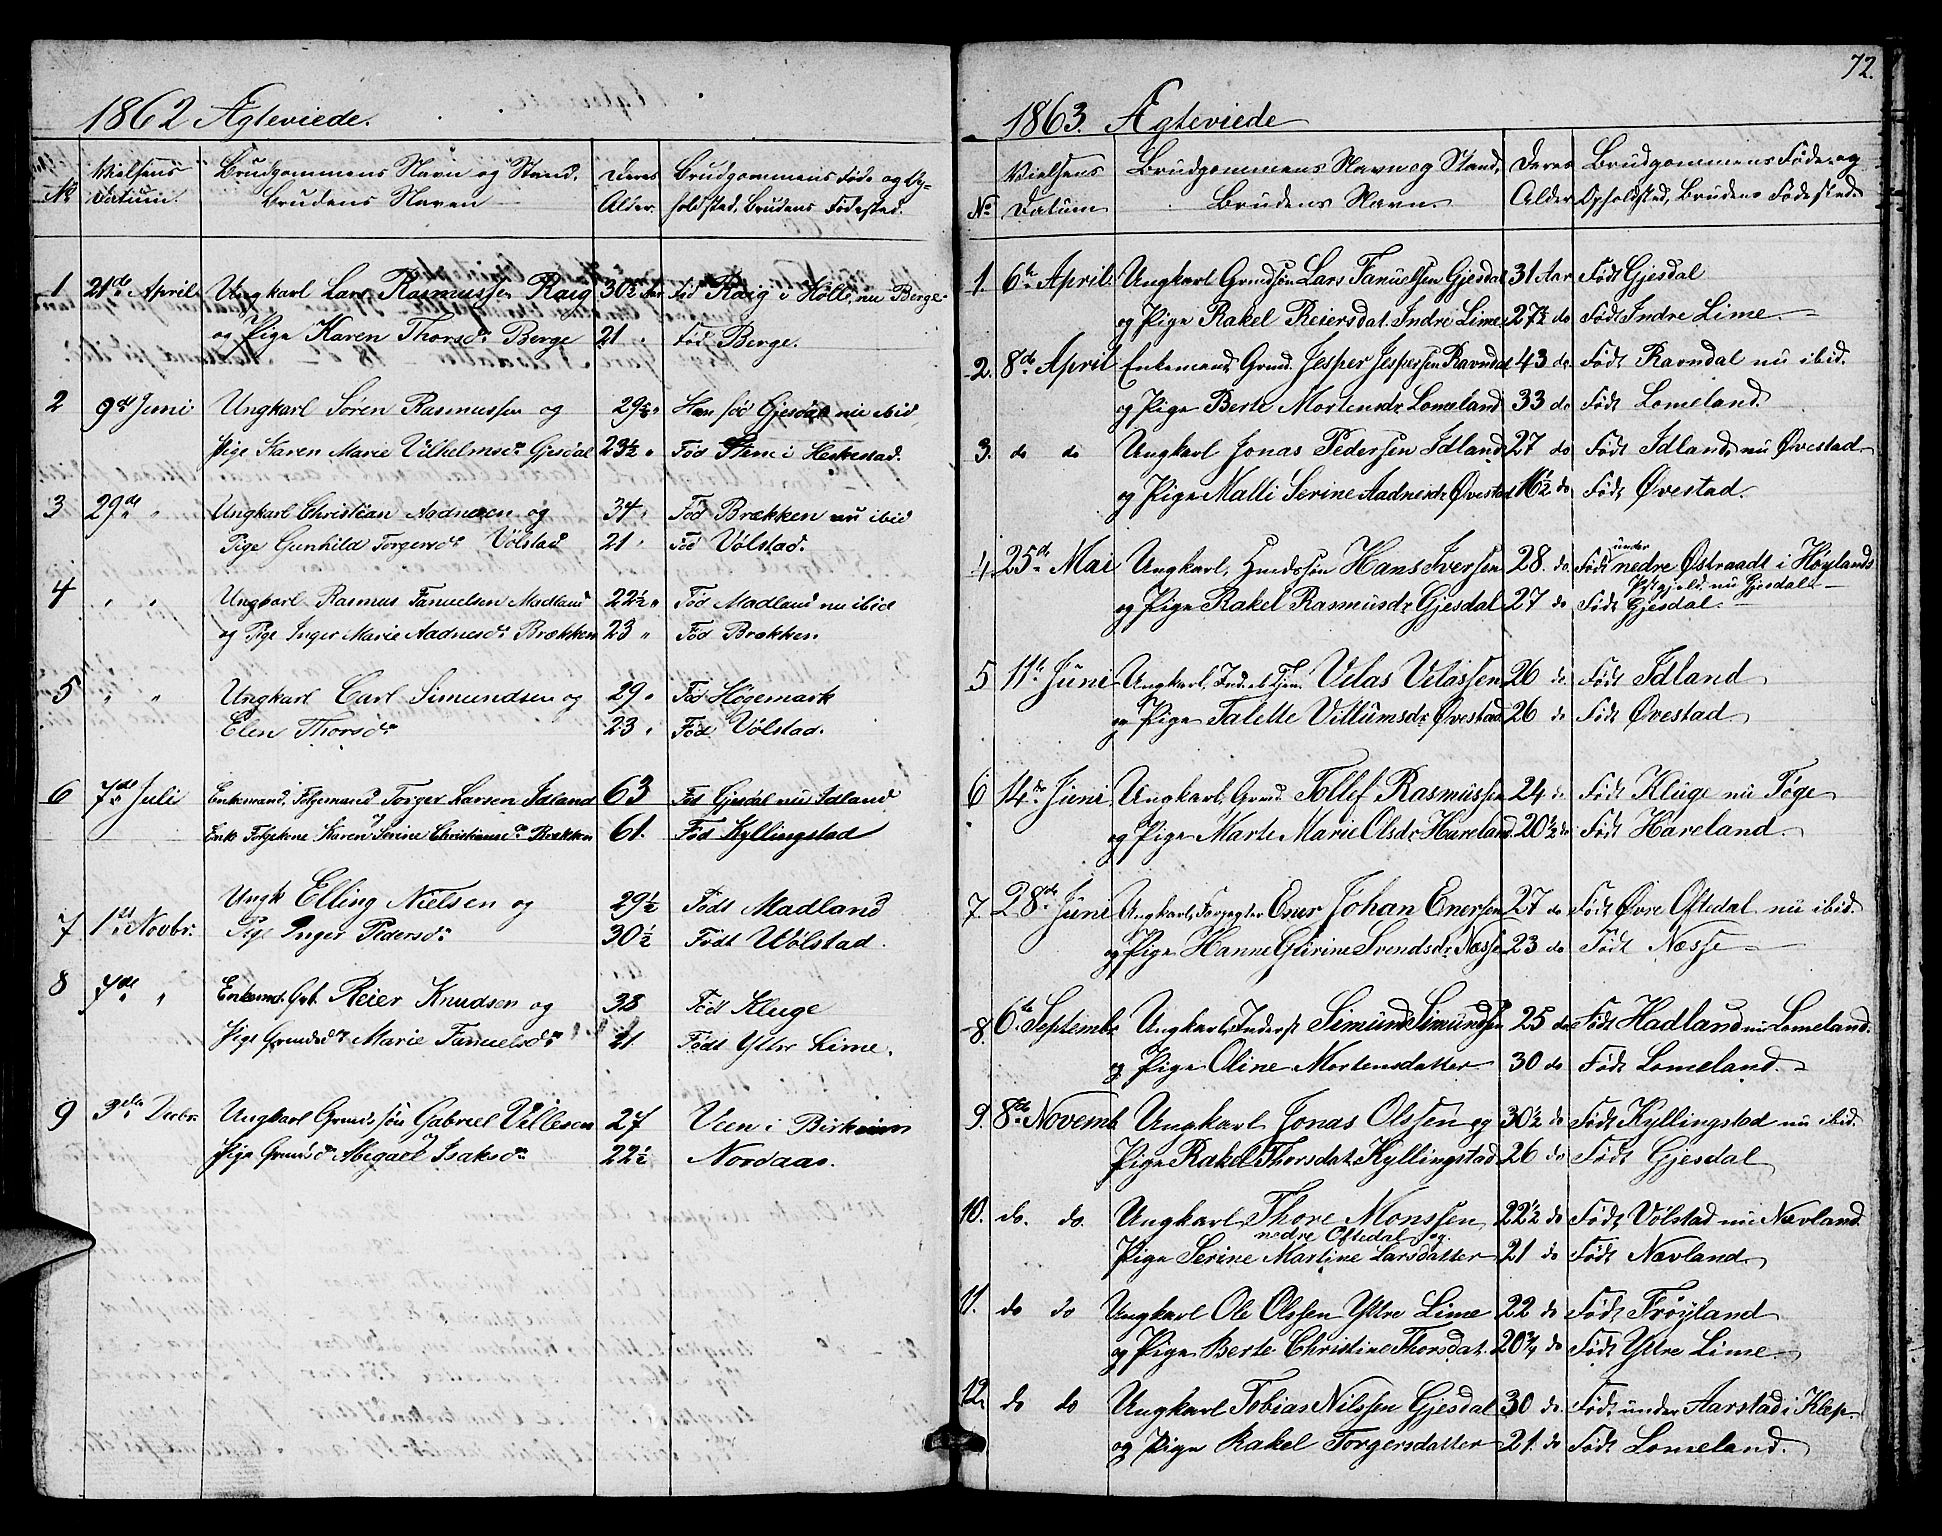 1862 Ægteviede.
No Vielsens Datum. Brudgommens Navn og Stand. Brudens Navn Deres Alder. Brudgommens Føde og Op-
holdsted, Brudens Fødested.
1 21de April Ungkarl Lars Rasmussen Raig 30½ Aar Fød Raig i Holle nu Berge
og Pige Karen Thorsdr Berge 21 " Fød Berge.
2 9de Juni Ungkarl Sören Rasmussen og 29½ " Han fød Gjesdal nu ibid
Pige Karen Marie Vilhelmsdr Gjesdal 23½ " Fød Steni i Heskestad.
3 29de " Ungkarl Christian Aadnesen og 34 " Fød Brækken nu ibid
Pige Gunhild Torgersdr Völstad 21 " Fød Völstad.
4 " " Ungkarl Rasmus Fanuelsen Madland 22½ " Fød Madland nu ibid
og Pige Inger Marie Aadnesdr Brækken 23 " Fød Brækken
5 " " Ungkarl Carl Simundsen og 29 " Fød Høgemark
Elen Thorsdr 23 " Fød Völstad.
6 7de Juli Enkemand, Følgemand Torger Larsen Idland 63 Fød Gjesdal nu Idland
Enke Følgekone Karen Serine Christiansdr Brækken 61. Fød Kyllingstad
7 1ste Novbr. Ungk Elling Nielsen og 29½ Født Madland
Pige Inger Pedersdr 30½ Født Völstad.
8 7de " Enkemd. Gbr. Reier Knudsen og 38 Født Kluge
Pige Grmdsdr Marie Fanuelsdr 21 Født Ytre Lime.
9 3die Decbr. Ungkarl Grmdssön Gabriel Villesen 27 Veen i Birkrem
Pige Grmdsdr Abigael Isaksdr 22½ Nordaas.
72.
1863. Ægteviede
No Vielsens Datum Brudgommens Navn og Stand, Brudens Navn. Deres Alder Brudgommens Føde- og
Opholdsted, Brudens Fødested
1. 6te April Ungkarl Grmdsön Lars Fanuelsen Gjesdal 31 Aar Født Gjesdal
og Pige Rakel Reiersdat. Indre Lime 27½ do Født Indre Lime.
2. 8de April Enkemand Grmd. Jesper Jespersen Ravndal 43 do Født Ravndal nu ibid.
og Pige Berte Mortensdr Lomeland 33 do Født Lomeland.
3. do do Ungkarl Jonas Pedersen Idland 27 do Født Idland, nu Øvestad
og Pige Malli Serine Aadnesdr Øvestad 16½ do Født Øvestad.
4. 25de Mai Ungkarl, Hans Iversen 28. do Født under nedre Østraadt i Høylands
Pstgjeld. nu Gjesdal.
og Pige Rakel Rasmusdr Gjesdal 27 do Født Gjesdal.
5 11te Juni Ungkarl, Velas Velassen 26 do Født Idland
og Pige Talette Villumsdr Øvestad 26 do Født Øvestad
6 14de Juni Ungkarl, Grmd. Tollef Rasmussen 24 do Født Kluge nu Føge
og Pige Marte Marie Olsdr Haveland 20½ do Født Haveland.
7. 28de Juni Ungkarl, Forpagter Ener Johan Enersen 27 do Født Øvre Oftedal nu ibid.
og Pige Hanne Gurine Svendsdr Nesse 23 do Født Nesse
8. 6te Septembr Ungkarl, Inderst Simund Simundsen 25 do Født Hadland nu Lomeland.
og Pige Oline Mortensdatter 30 do Født Lomeland.
9. 8de Novemb Ungkarl Jonas Olssen og 30½ do Født Kyllingstad nu ibid.
Pige Rakel Thorsdat. Kyllingstad 26 do Født Gjesdal
10. do. do. Ungkarl Thore Monssen 22½ do Født Völstad nu Nævland
nedre Oftedal og
Pige Serine Martine Larsdatter 21 do Født Nævland.
11. do do Ungkarl Ole Olssen Ytre Lime 22 do Født Frøyland
og Pige Berte Christine Thorsdat. 20¾ do Født Ytre Lime
12. do do Ungkarl Tobias Nilssen Gjesdal 30 do. Født under Aarstad i Klep.
og Pige Rakel Torgersdatter 21. do Født Lomeland.